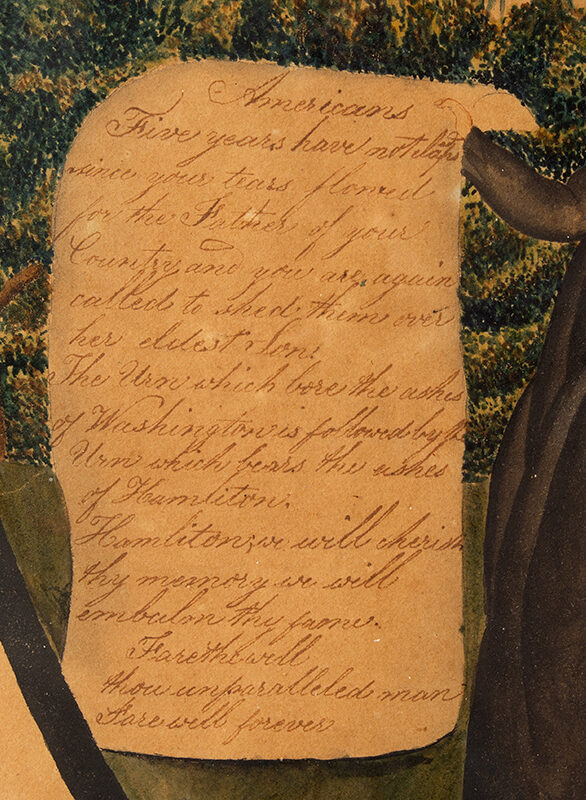 Americans
Five years have not elaps'd
since your tears flowed
for the Father of your
Country and you are again
called to shed them over
her eldest Son!
The Urn which bore the ashes
of Washington is followed by the
Urn which bears the ashes
of Hamliton.
Hamliton, we will cherish
thy memory we will
embalm thy fame.
Farethewill
thou unparalleled man
Farewill forever